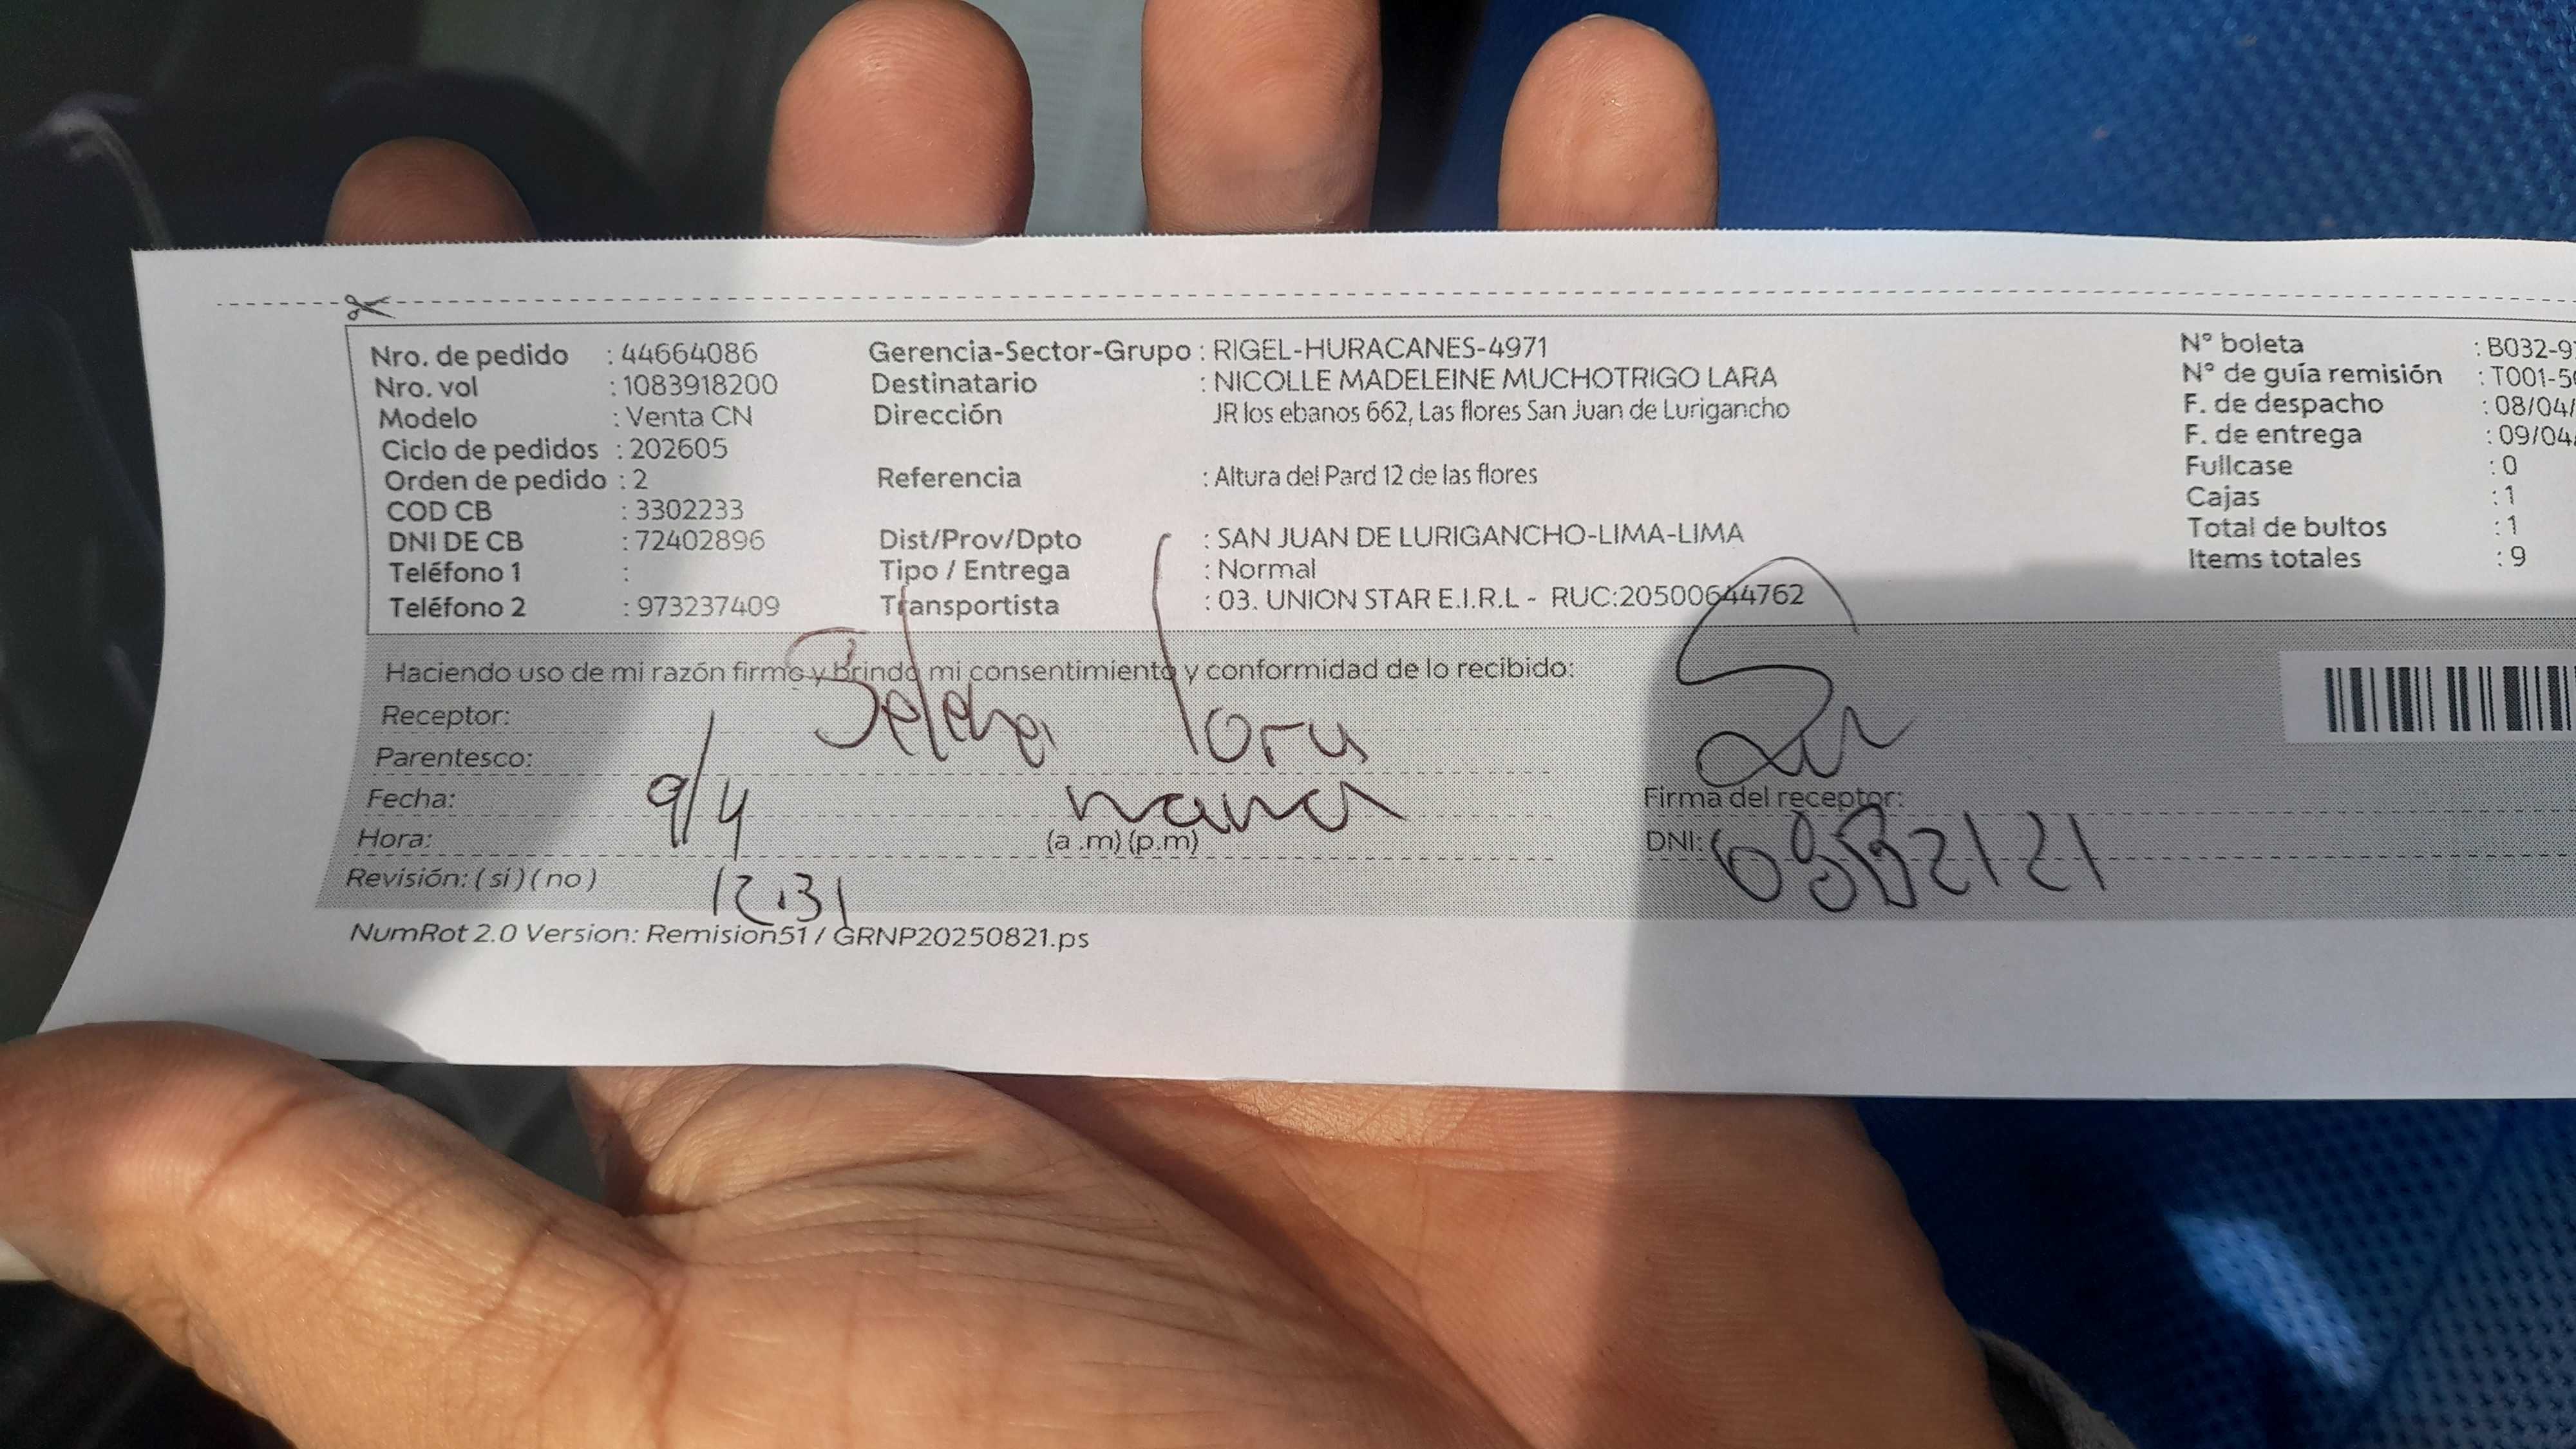 Nro. de pedido : 44664086 Gerencia-Sector-Grupo : RIGEL-HURACANES-4971 N° boleta : B032-9
Nro. vol : 1083918200 Destinatario : NICOLLE MADELEINE MUCHOTRIGO LARA N° de guía remisión : T001-5
Modelo : Venta CN Dirección JR los ebanos 662, Las flores San Juan de Lurigancho F. de despacho : 08/04/
Ciclo de pedidos : 202605 F. de entrega : 09/04
Orden de pedido : 2 Referencia : Altura del Pard 12 de las flores Fullcase : 0
COD CB : 3302233 Cajas : 1
DNI DE CB : 72402896 Dist/Prov/Dpto : SAN JUAN DE LURIGANCHO-LIMA-LIMA Total de bultos : 1
Teléfono 1 : Tipo / Entrega : Normal Items totales : 9
Teléfono 2 : 973237409 Transportista : 03. UNION STAR E.I.R.L - RUC:20500644762
Haciendo uso de mi razón firmo y brindo mi consentimiento y conformidad de lo recibido:
Receptor:
Parentesco:
Fecha: 9/4 Firma del receptor:
Hora: (a .m) (p.m) DNI:
Revisión: ( si ) ( no ) 12:31
NumRot 2.0 Version: Remision51 / GRNP20250821.ps